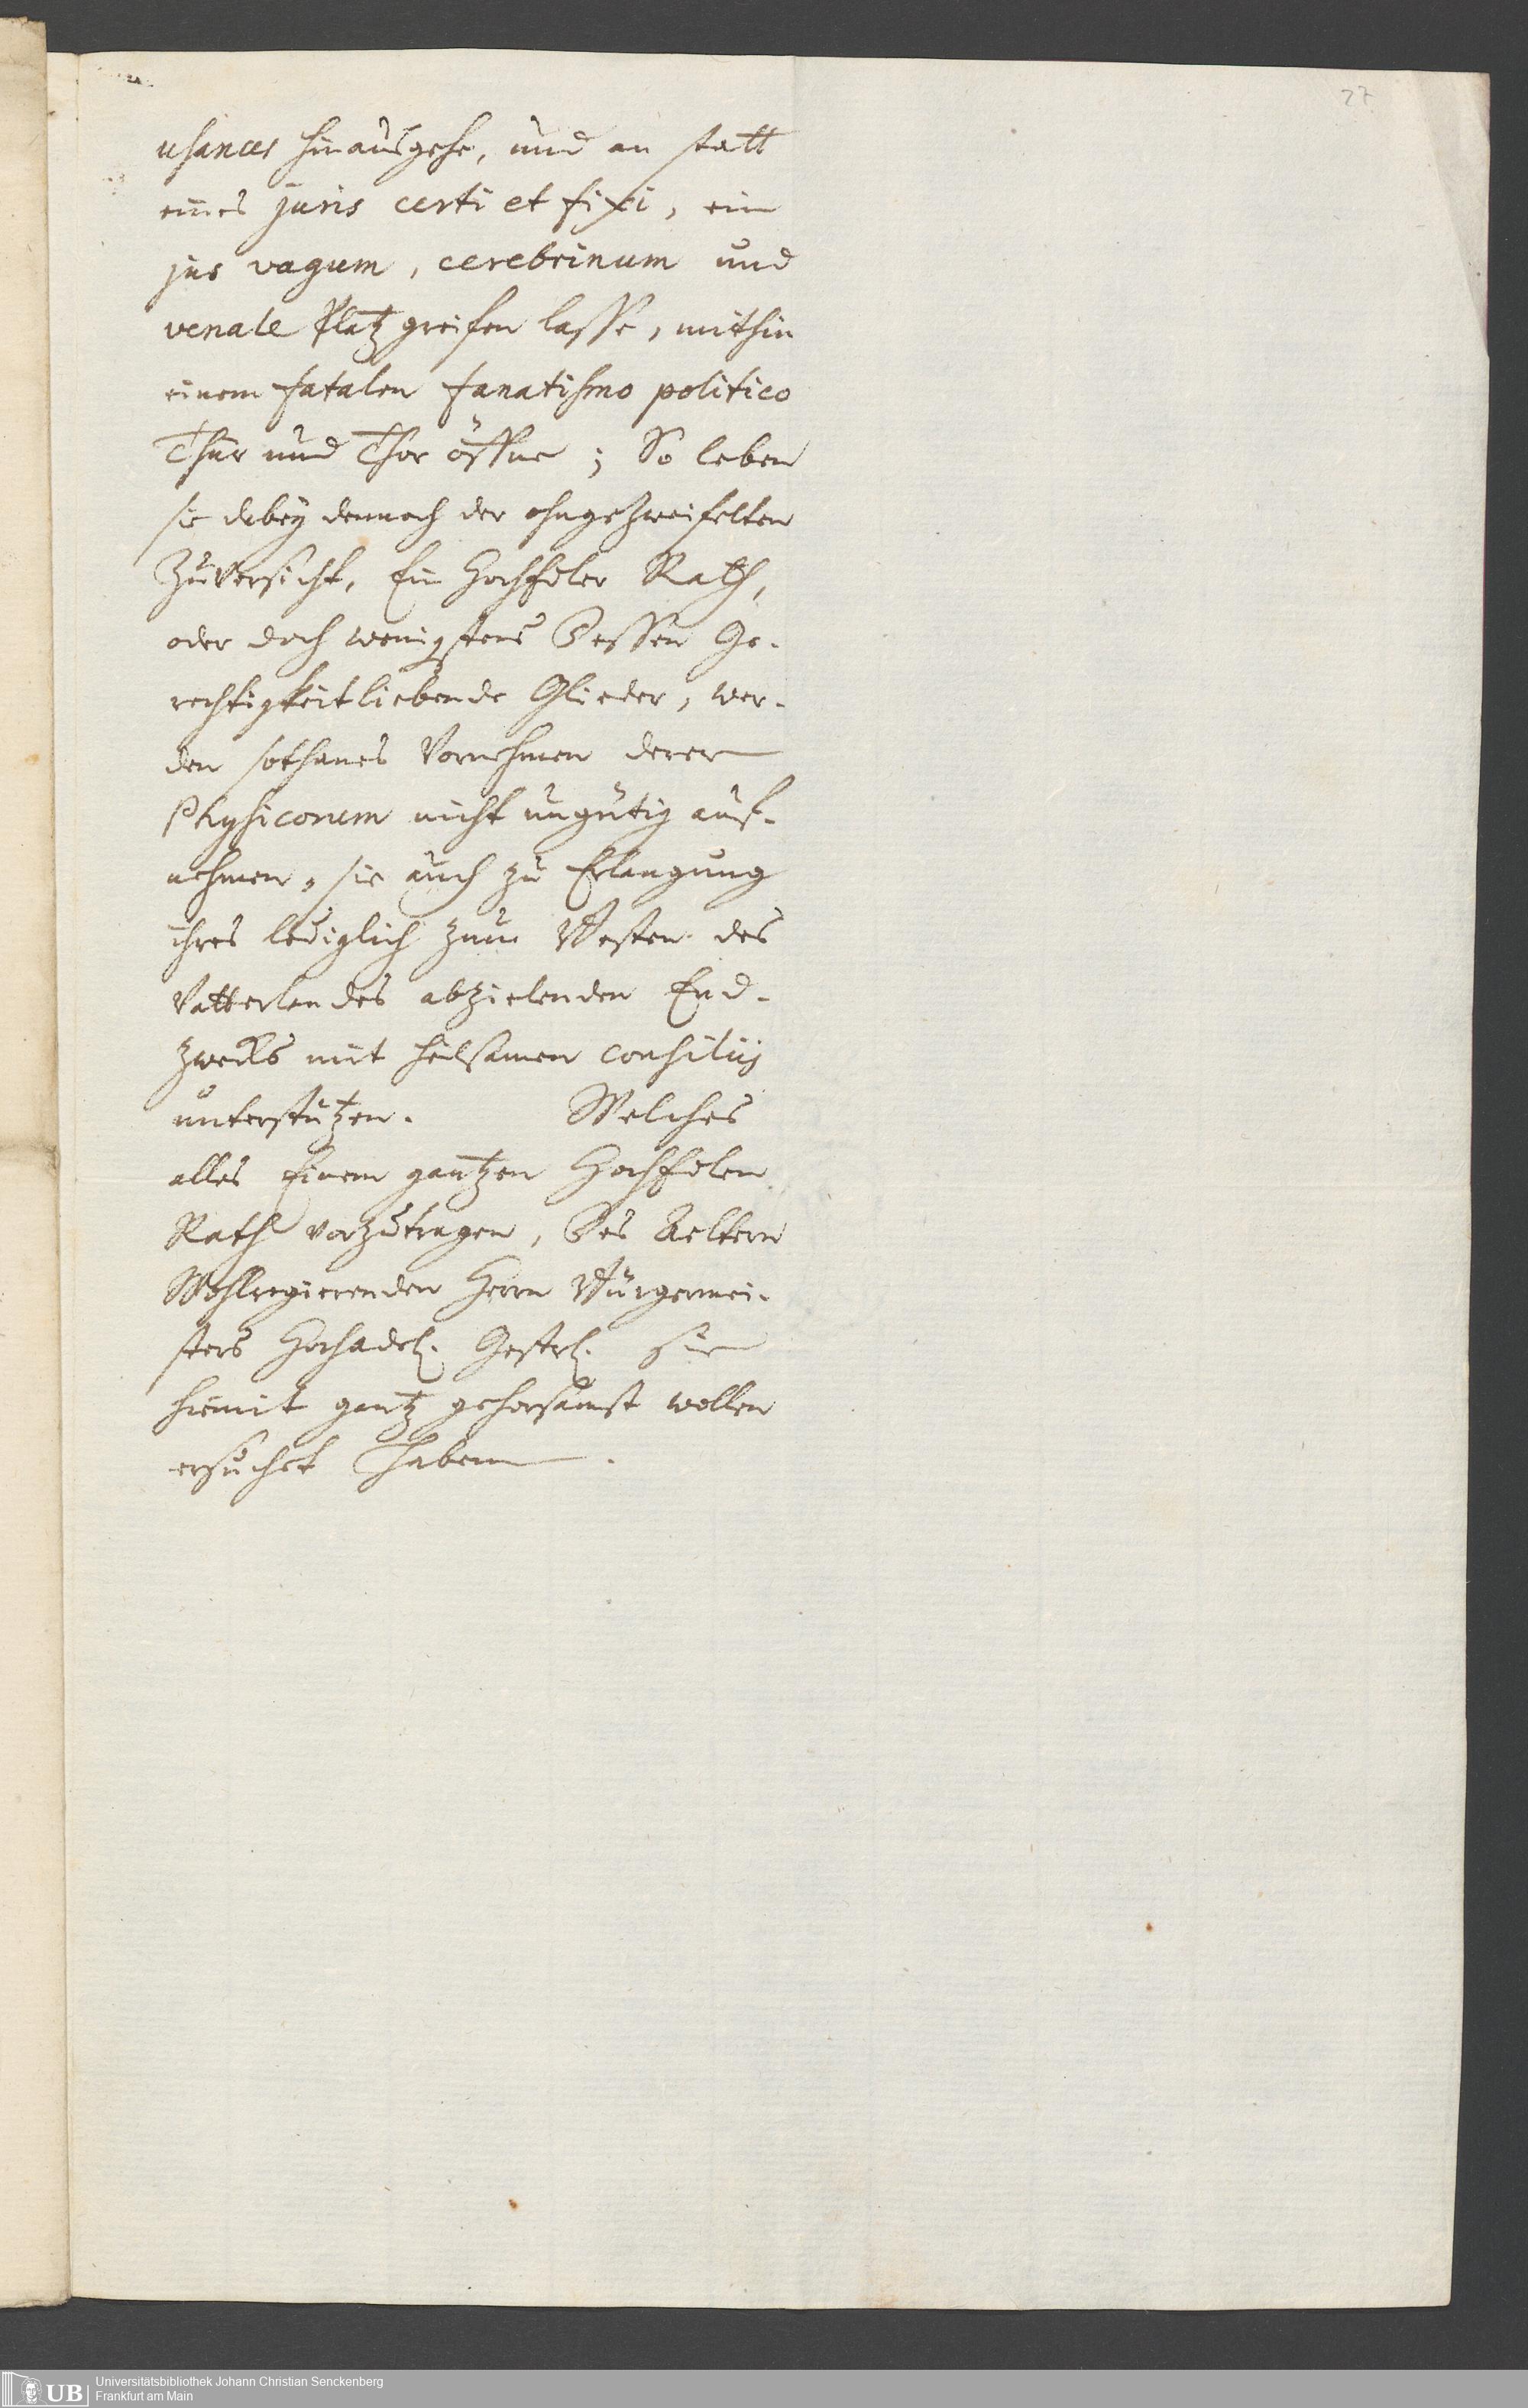 27
usances hinausgehe, und an statt
eines juris certi et fixi, ein
jus vagum, cerebrinum und
venale Platz greifen lasse, mithin
einem fatalen fanatismo politico
Thür und Thor öffne; So leben
sie dabey dennoch der ohngezweifelten
Zuversicht, Ein HochEdler Rath,
oder doch wenigstens Dessen Ge-
rechtigkeitliebende Glieder, wer-
den sothanes Vornehmen derer
Physicorum nicht ungütig auf-
nehmen, sie auch zu Erlangung
ihres lediglich zum Besten des
Vatterlandes abzielenden End-
zwecks mit heilsamen consiliis
unterstützen. Welches
alles Einem gantzen HochEdlen
Rath vorzutragen, Des Aeltern
Wohlregierenden Herrn Burgermei-
sters Hochadel. Gestrl. Sie
hiemit gantz gehorsamst wollen
ersuchet haben.
UB Universitätsbibliothek Johann Christian Senckenberg
Frankfurt am Main